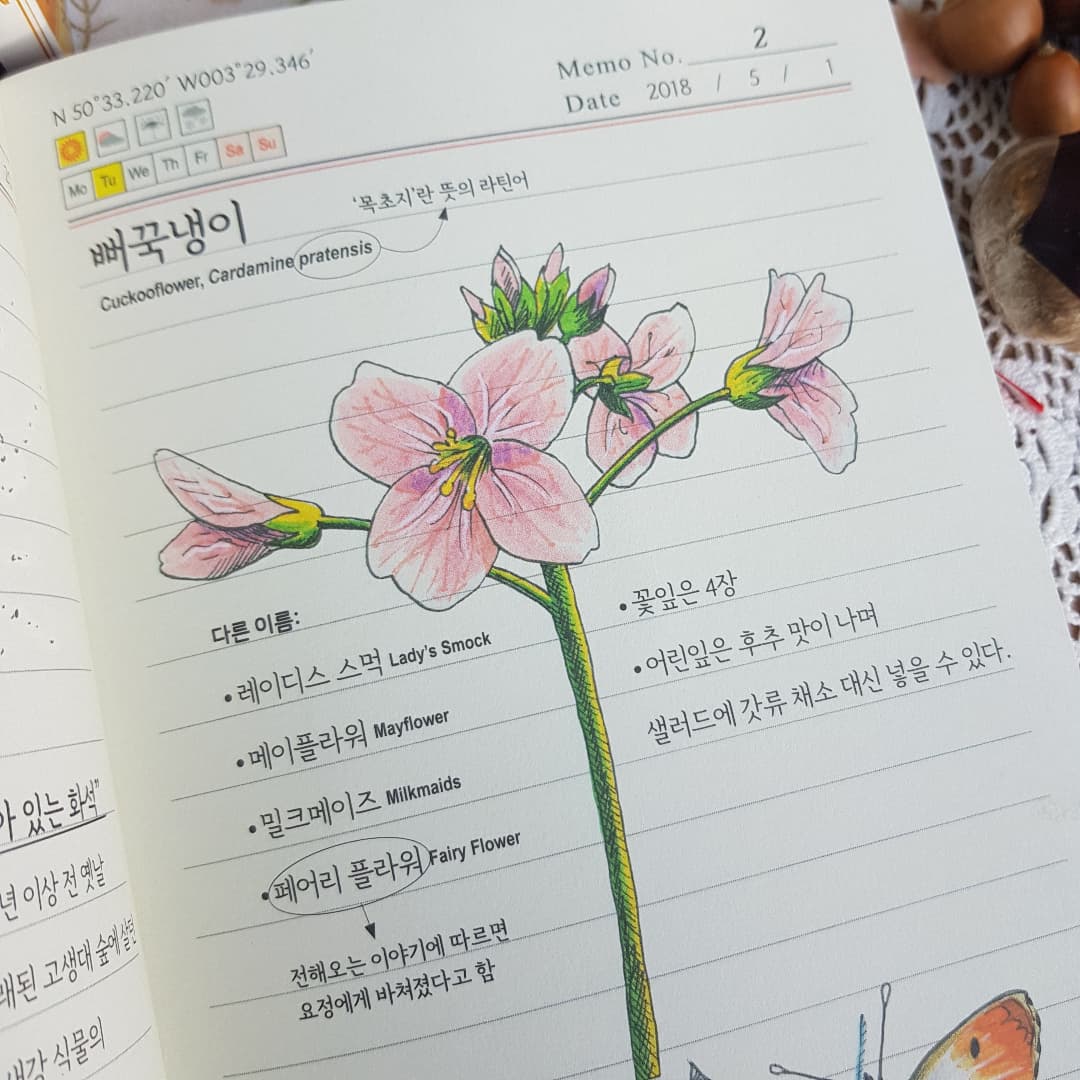 N 50°33.220′ W003°29.346′
Memo No. 2
Date 2018 / 5 / 1
Mo Tu We Th Fr Sa Su
뻐꾹냉이
'목초지'란 뜻의 라틴어
Cuckooflower, Cardamine pratensis
다른 이름:
• 레이디스 스먹 Lady's Smock
• 메이플라워 Mayflower
• 밀크메이즈 Milkmaids
• 페어리 플라워 Fairy Flower
전해오는 이야기에 따르면
요정에게 바쳐졌다고 함
• 꽃잎은 4장
• 어린잎은 후추 맛이 나며
샐러드에 갓류 채소 대신 넣을 수 있다.
있는 화석"
년 이상 전 옛날
고생대 숲에 살던
식물의